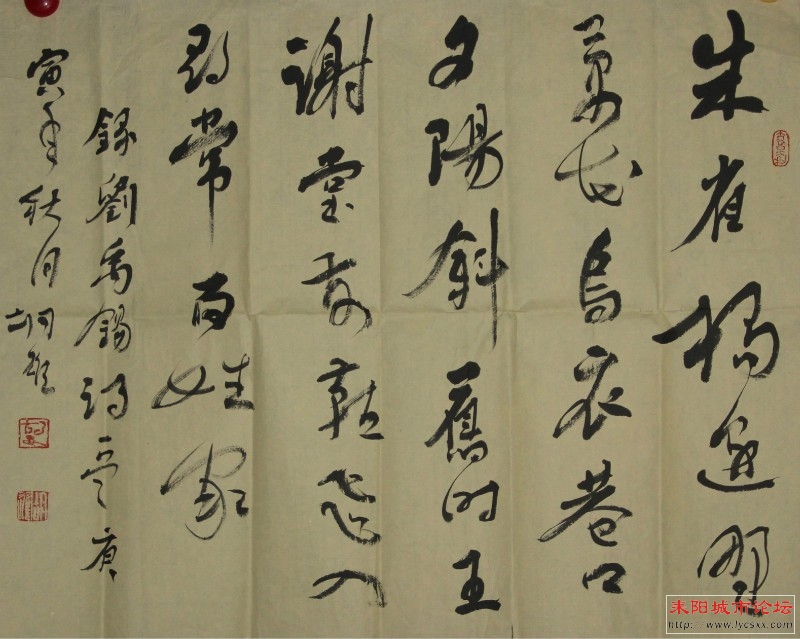 朱雀橋邊野
草花烏衣巷口
夕陽斜舊時王
謝堂前燕飛入
尋常百姓家
錄劉禹錫詩一首庚
寅年秋月
耒阳城市论坛
http://www.lycsxx.com